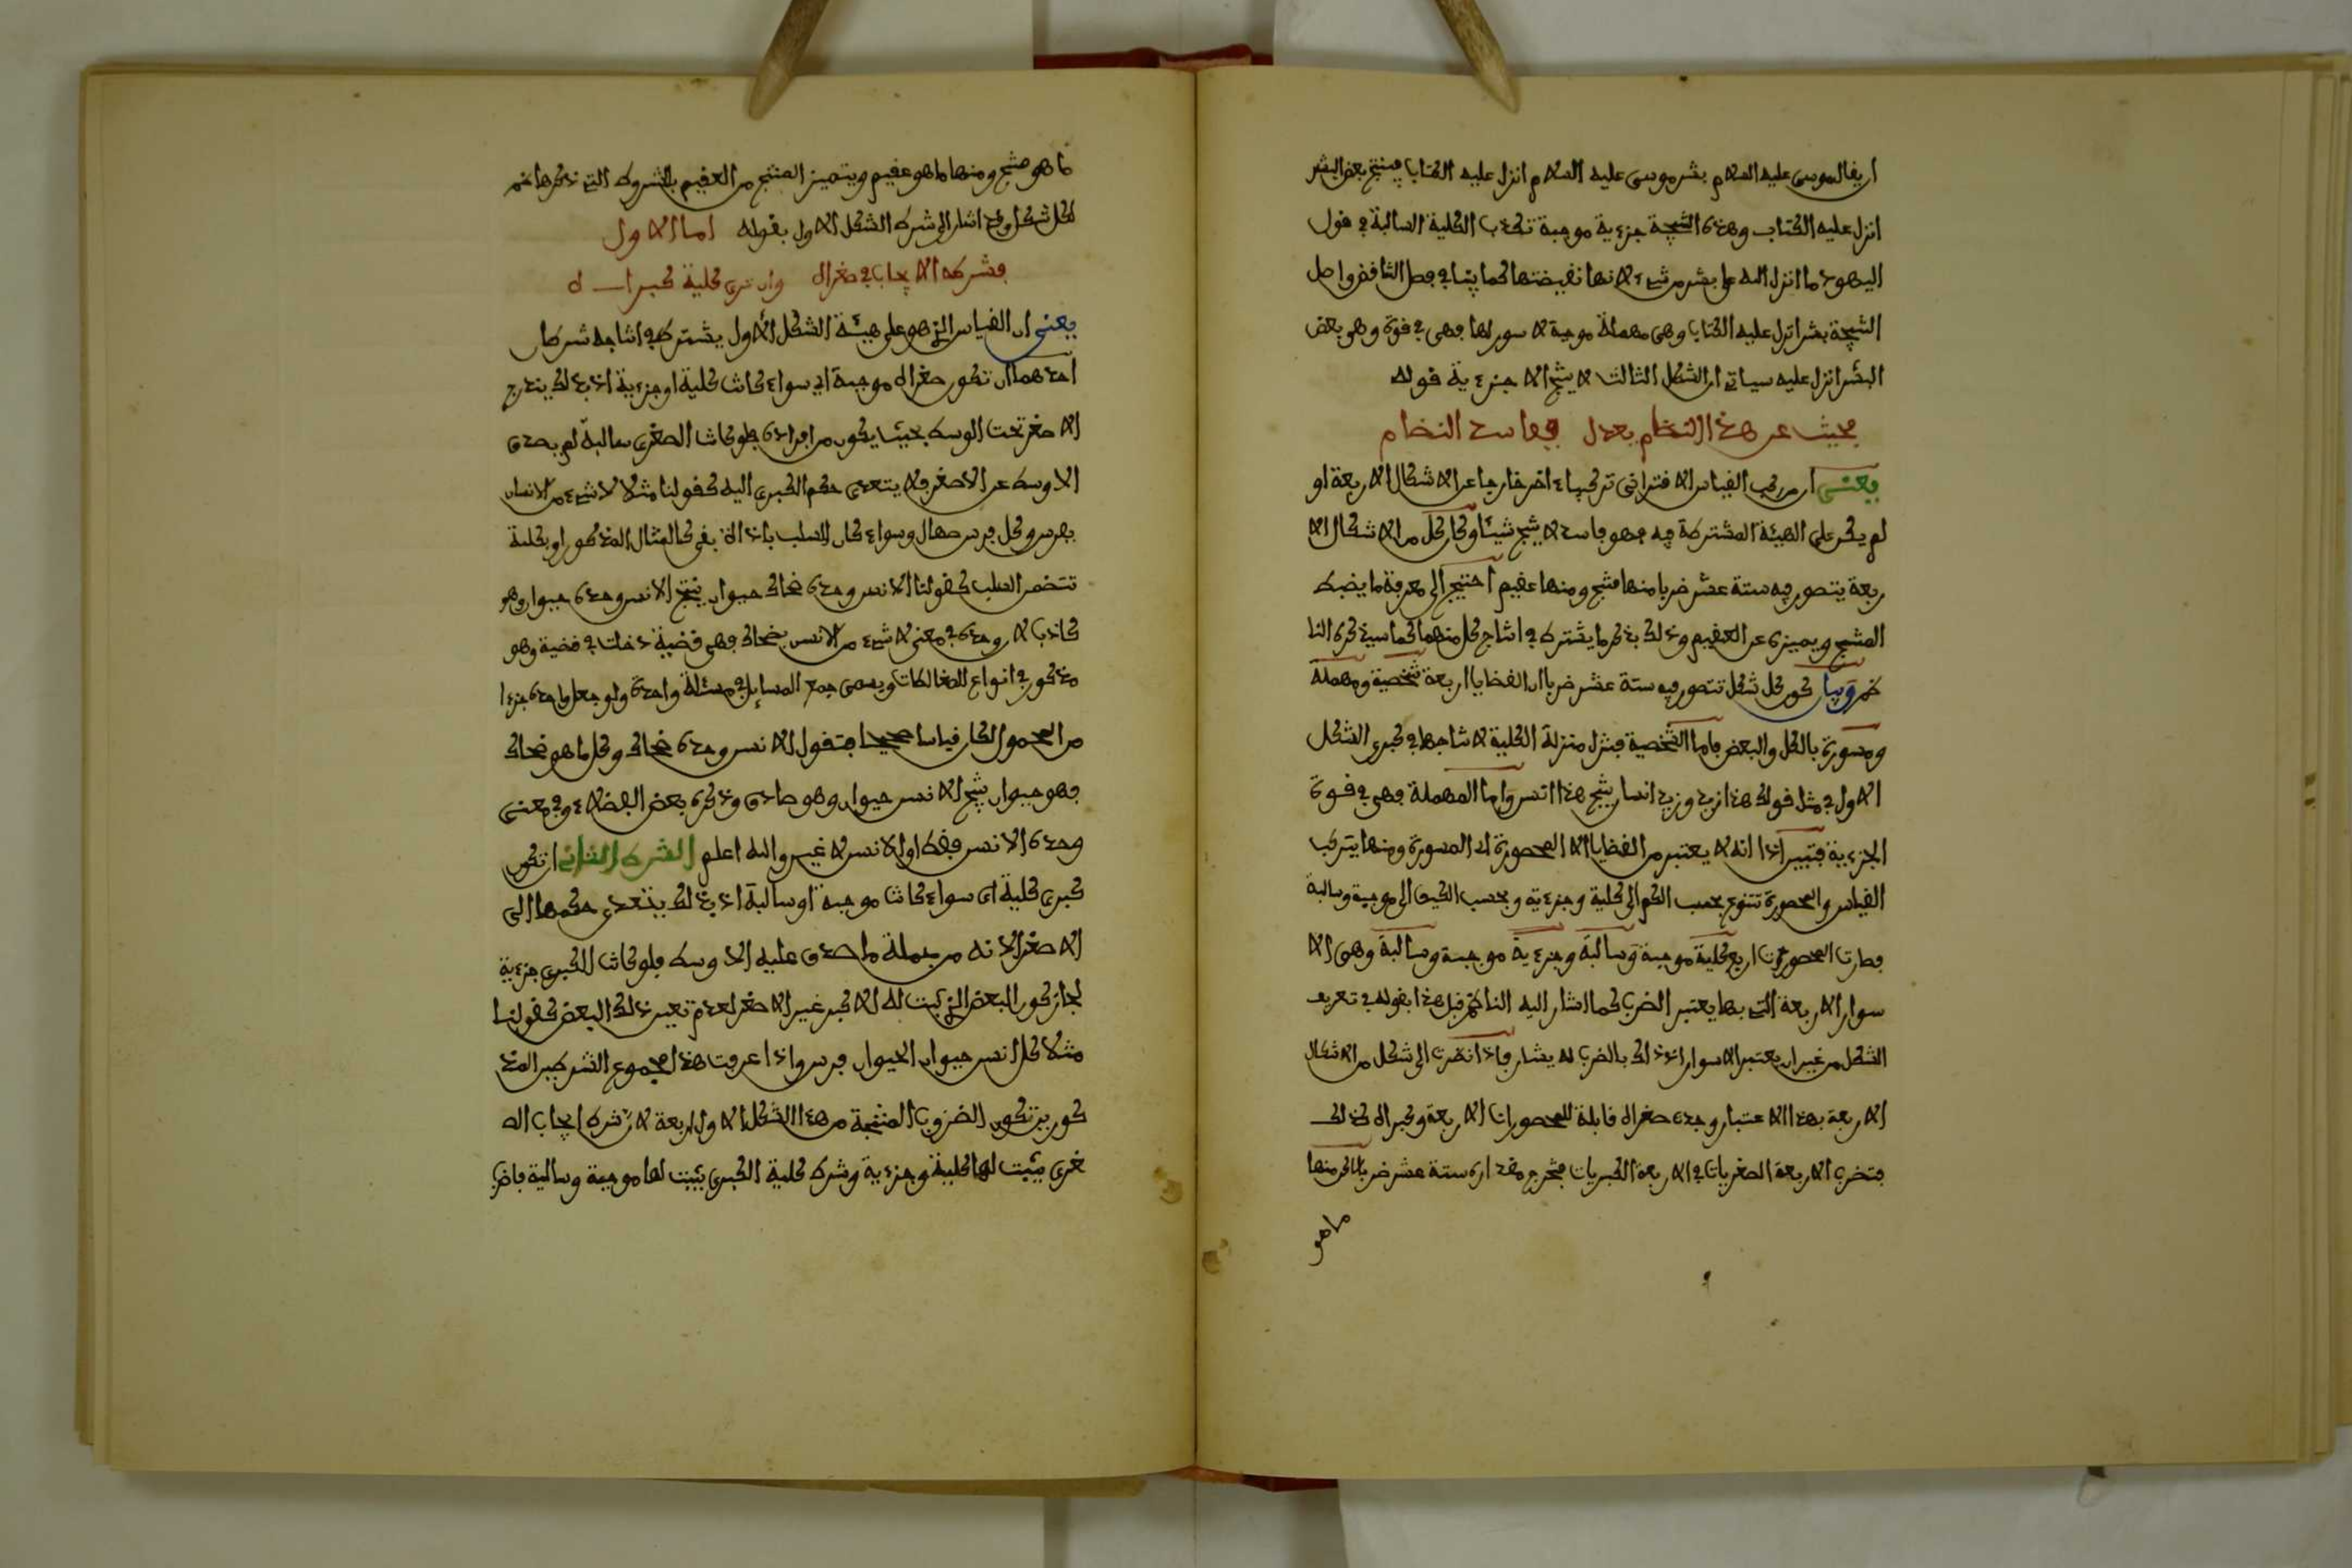 ان يقال موسى عليه السلام بشر موسى عليه السلام انزل عليه الكتاب فينتج بعض البشر
انزل عليه الكتاب وهذه النتيجة جزءية موجبة تكذب الكلية السالبة في قول
اليهود ما انزل الله على بشر من شيء لانها نقيضتها كما يتاتى في فصل التناقض واصل
النتيجة بشر انزل عليه الكتاب وهي مهملة موجبة لا سور لها فهي في قوة وهو بعض
البشر انزل عليه سياتي ان الشكل الثالث لا ينتج الا جزءية قوله
فحيث عن هذا النظام يعدل ففاسد النظام
يعني ان من ركب القياس الافتراني تركيبا ءاخر خارجا عن الاشكال الاربعة او
لم يكن على الهيئة المشتركة فيه فهو فاسد لا ينتج شيئا وكان كل من الاشكال الا
ربعة يتصور فيه ستة عشر ضربا منها منتج ومنها عقيم احتيج الى معرفة ما يضبط
المنتج ويميزه عن العقيم وذلك بذكر ما يشترط في انتاج كل منهما كما سيذكره النا
ظم وبيان كون كل شكل تتصور فيه ستة عشر ضربا ان القضايا اربعة شخصية ومهملة
ومسورة بالكل والبعض فاما الشخصية فتنزل منزلة الكلية لانتاجها في كبرى الشكل
الاول في مثل قولك هذا زيد وزيد انسان ينتج هذا انسن واما المهملة فهي في قوة
الجزءية فتبين اذا انه لا يعتبر من القضايا الا المحصورة اي المسورة ومنها يتركب
القياس والمحصورة تتنوع بحسب الكم الى كلية وجزءية وبحسب الكيف الى موجبة وسالبة
فصارت المحصورات اربع كلية موجبة وسالبة وجزءية موجبة وسالبة وهي الا
سوار الاربعة التي بها يعتبر الضرب كما اشار اليه الناظم قبل هذا بقوله في تعريف
الشكل من غير ان يعتبر الاسوار اذ ذاك بالضرب له يشار فاذا نظرت الى شكل من الاشكال
الاربعة بهذا الاعتبار وجدت صغراه قابلة للمحصورات الاربعة وكبراه كذلك
فتضرب الاربعة الصغريات في الاربعة الكبريات فتخرج مقداره ستة عشر ضربا لكن منها
ماهو
ما هو منتج ومنها ما هو عقيم ويتميز المنتج من العقيم بالشروط التي ذكرها ثم
لكل شكل وقد اشار الى شرط الشكل الاول بقوله اما الاول
فشرطه الايجاب في صغراه وان ترى كلية كبراه
يعني ان القياس الذي هو على هيئة الشكل الاول يشترط في انتاجه شرطان
احدهما ان تكون صغراه موجبة اي سواء كانت كلية او جزءية اذ بذلك يندرج
الاصغر تحت الوسط بحيث يكون من افراده فلو كانت الصغرى سالبة لم يصدق
الاوسط عن الاصغر فلا يتعدى حكم الكبرى اليه كقولنا مثلا لا شيء من الانسان
بفرس وكل فرس صهال وسواء كان السلب باداة نفي كالمثال المذكور او بكلمة
تتضمن السلب كقولنا الانسن وحده ضحاك حيوان ينتج الانسن وحده حيوان وهو
كاذب لان وحده في معنى لا شيء من الانسن بضحاك فهي قضية دخلت في قضية وهو
مذكور في انواع المغالطات ويسمى جمع المسايل في مسئلة واحدة ولو جعل وحده جزءا
من المحمول لكان قياسا صحيحا فتقول الانسن وحده ضحاك وكل ما هو ضحاك
فهو حيوان ينتج الانسن حيوان وهو صادق وذكره بعض الفضلاء وفي معنى
وحده الانسن فقط او الانسن لا غير والله اعلم الشرط الثاني ان تكون
كبرى كلية اي سواء كانت موجبة او سالبة اذ بذلك يتعدى حكمها الى
الاصغر لانه من جملة ما صدق عليه الاوسط فلو كانت الكبرى جزءية
لجاز كون البعض الذي ثبت له الاكبر غير الاصغر لعدم تعين ذلك البعض كقولنا
مثلا كل انسن حيوان الحيوان فرس واذا عرفت هذا مجموع الشرطين المذ
كورين تكون الضروب المنتجة من هذا الشكل الاول اربعة لان شرط ايجاب الص
غرى يثبت لها كلية وجزءية وشرط كلية الكبرى يثبت لها موجبة وسالبة فاضرب